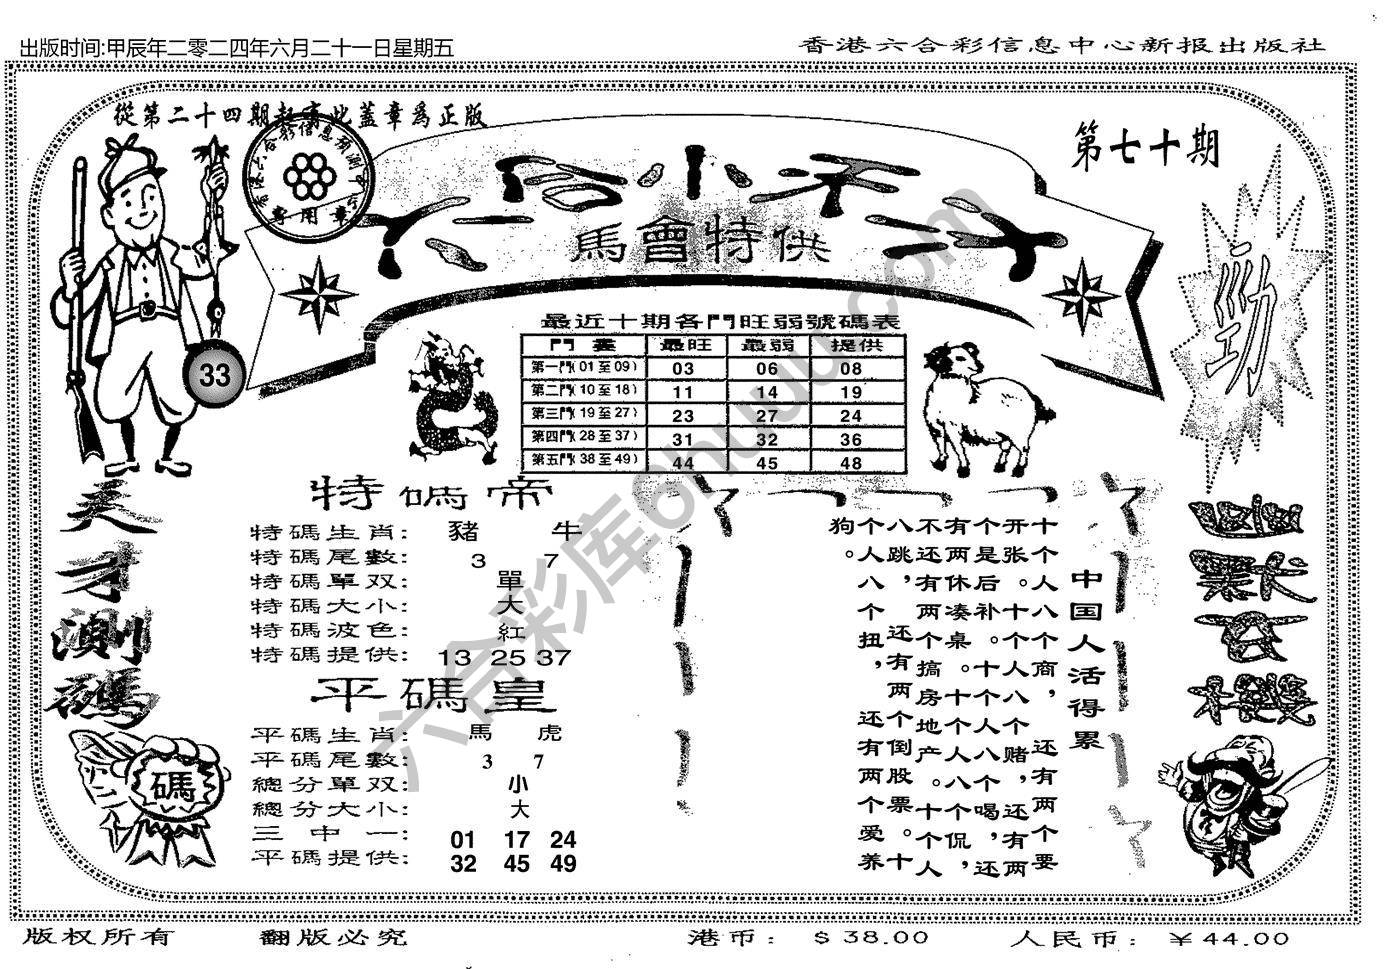 出版时间:甲辰年二零二四年六月二十一日星期五
香港六合彩信息中心新报出版社
從第二十四期起寄此蓋章為正版
第七十期
六合小天子
馬會特供
專用章
33
勁
最近十期各門旺弱號碼表
門 最旺 最弱 提供
第一門(01至09) 03 06 08
第二門(10至18) 11 14 19
第三門(19至27) 23 27 24
第四門(28至37) 31 32 36
第五門(38至49) 44 45 48
天才測碼
碼
特碼帝
特碼生肖: 豬 牛
特碼尾數: 3 7
特碼單双: 單
特碼大小: 大
特碼波色: 紅
特碼提供: 13 25 37
平碼皇
平碼生肖: 馬 虎
平碼尾數: 3 7
總分單双: 小
總分大小: 大
三中一: 01 17 24
平碼提供: 32 45 49
中国人活得累
十个人八个商，还有两个要
开张。十个人八个赌，还有两
个是后补。十个人八个喝，还
有两休凑桌。十个人八个侃，
不还有两个搞房地产。十个人
八跳，还有两个倒股票。十
个人八个扭，还有两个爱养
狗。
六合彩库6huu.com
版权所有
翻版必究
港币: $38.00
人民币: ￥44.00